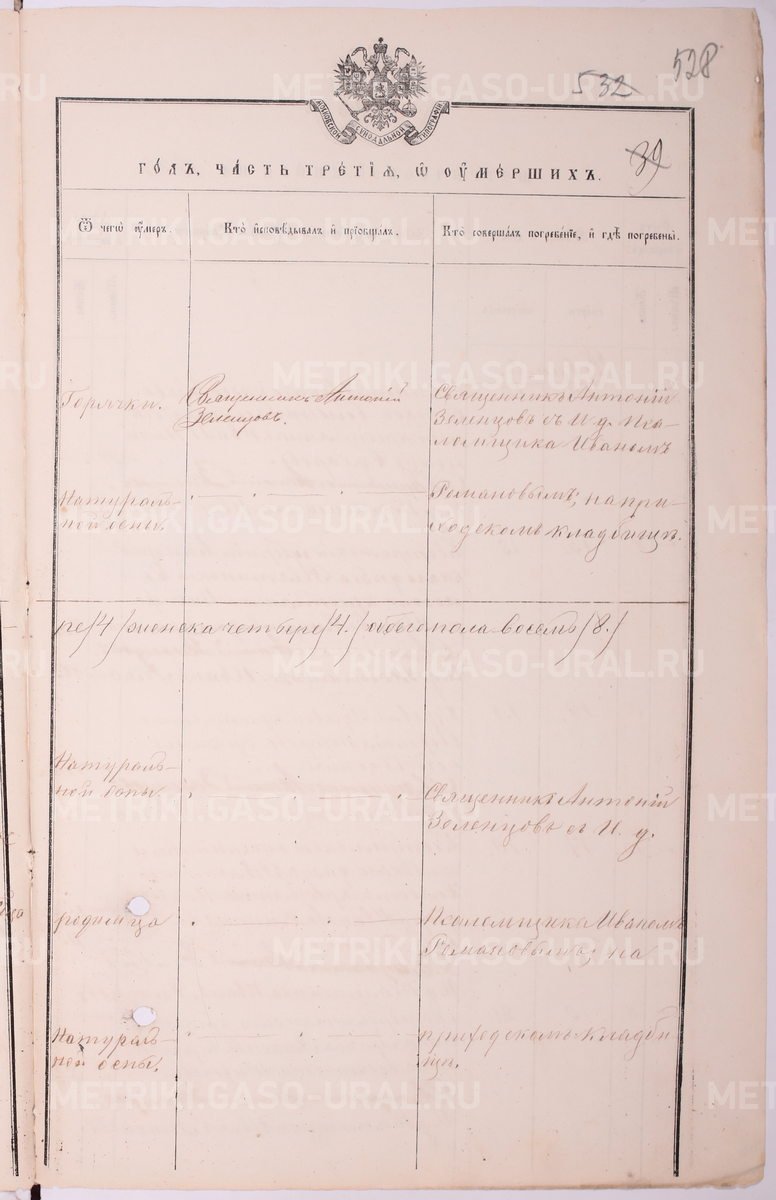 528
532
39
МОСКОВСКОЙ СѴНОДАЛЬНОЙ ТИПОГРАФІИ
ГО́ДЪ, ЧА́СТЬ ТРЕ́ТІѦ, Ѡ ОУ҆МЕ́РШИХЪ.
Ѿ чегѡ̀ оу҆́меръ.
Кто̀ и҆сповѣ́дывалъ и҆ прїѡбща́лъ.
Кто̀ соверша́лъ погребе́нїе, и҆ гдѣ̀ погребены̀.
Горячки.
Священникъ Антоній
Зеленцовъ.
Священникъ Антоній
Зеленцовъ съ И. д. Пса-
ломщика Иваномъ
Натураль-
ной оспы.
Романовымъ; на при-
ходскомъ кладбищѣ.
ре/4/ женска четыре/4./ обоего пола восемь/8./
Натураль-
ной оспы
Священникъ Антоній
Зеленцовъ съ И. д.
родимца
Псаломщика Иваномъ
Романовымъ; на
Натураль-
ной оспы.
приходскомъ кладби
щѣ.
METRIKI.GASO-URAL.RU